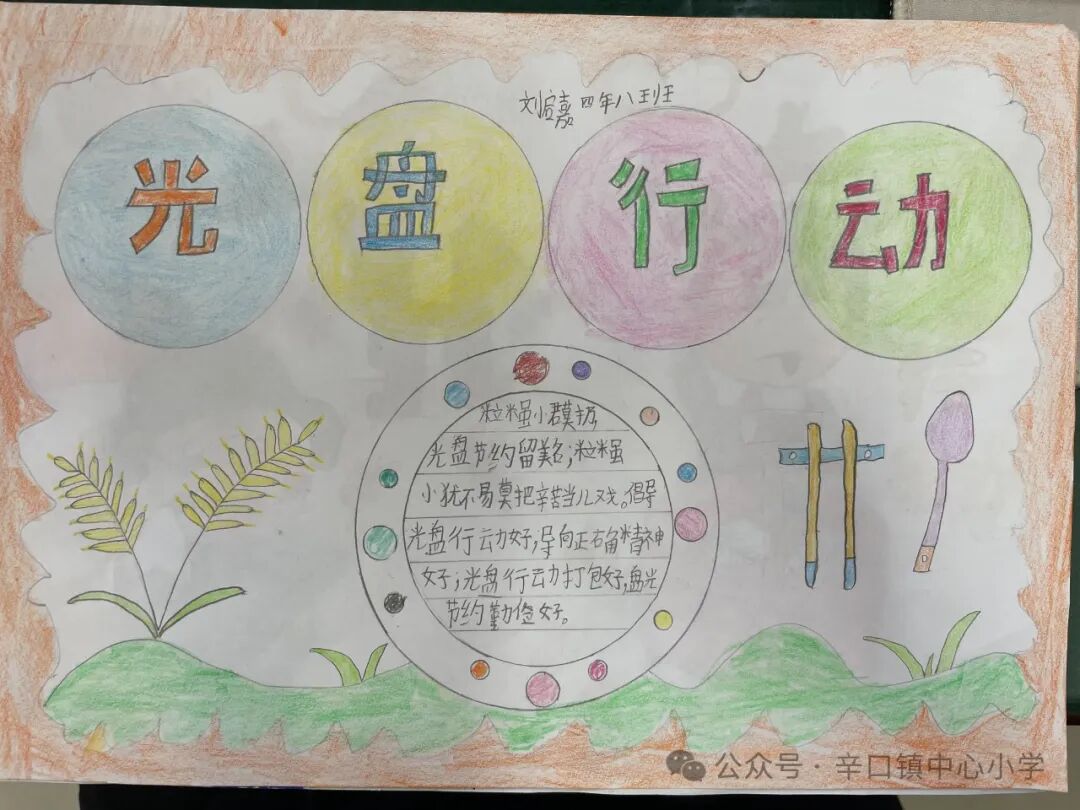 刘宣嘉 四年八班
光盘行动
粒米虽小群莫扔,
光盘节约留美名;粒米虽
小犹不易莫把辛苦当儿戏。倡导
光盘行动好,导向正确精神
好;光盘行动打包好,盘光
节约勤俭好。
公众号·辛口镇中心小学